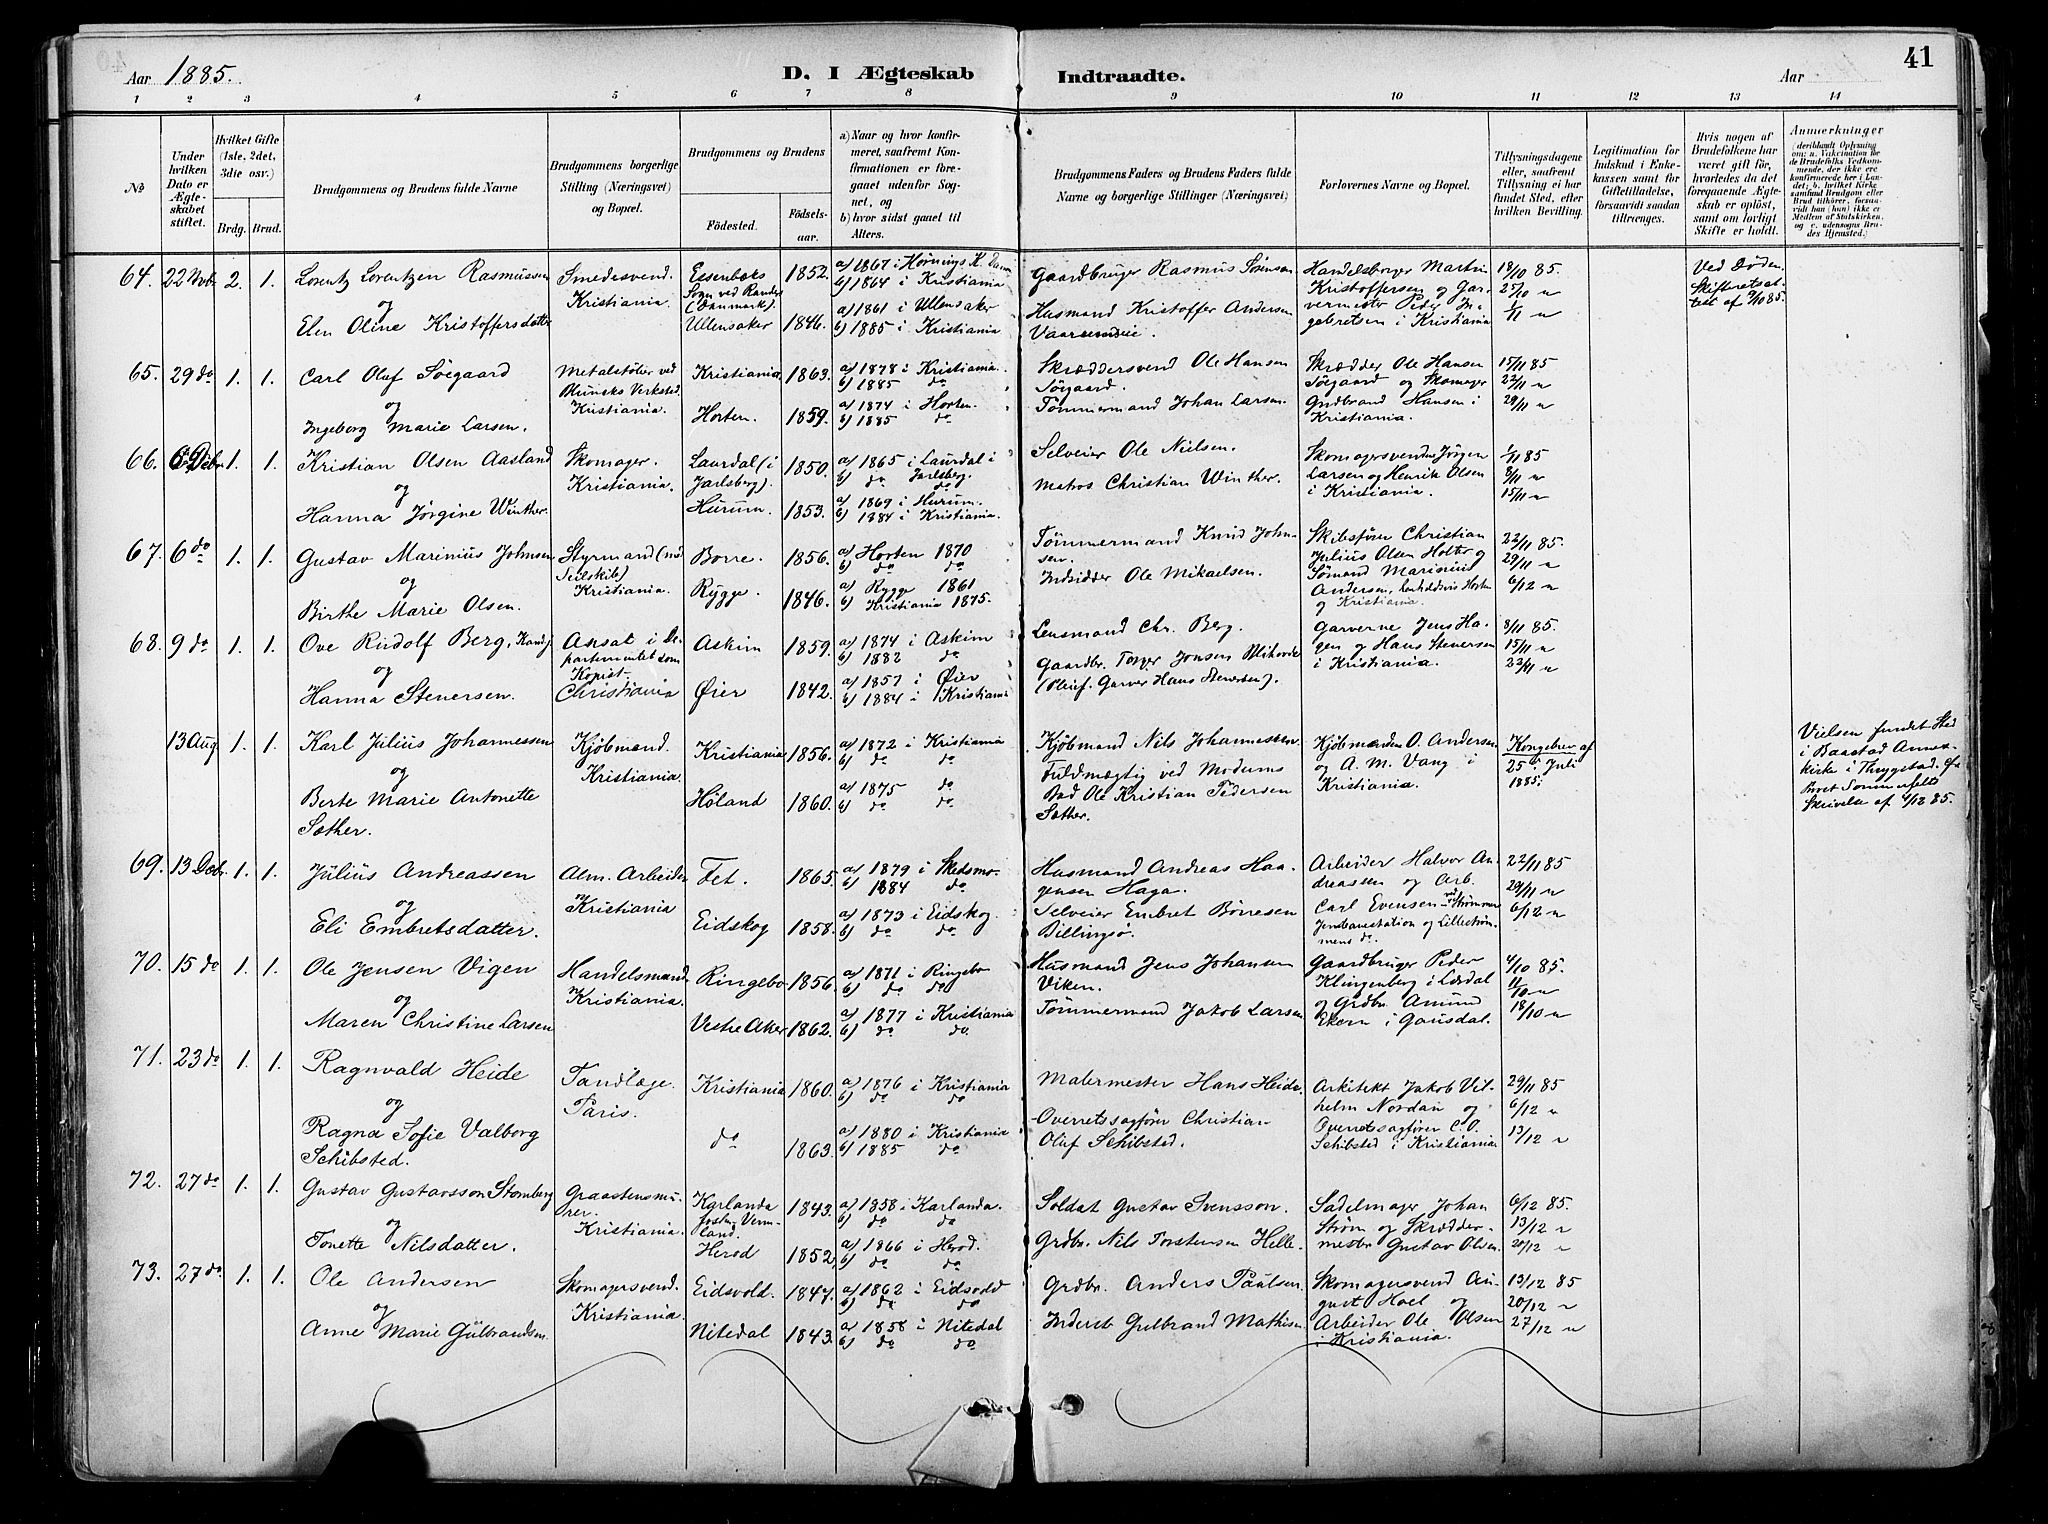 41
Aar 1885.
D. I Ægteskab Indtraadte.
Aar
1 2 3 4 5 6 7 8 9 10 11 12 13 14
No
Under hvilken Dato er Ægteskabet stiftet.
Hvilket Gifte (1ste, 2det, 3die osv.)
Brdg. Brud.
Brudgommens og Brudens fulde Navne
Brudgommens borgerlige Stilling (Næringsvei) og Bopæl.
Brudgommens og Brudens
Fødested. Fødselsaar.
a) Naar og hvor konfirmeret, saafremt Konfirmationen er foregaaet udenfor Sognet, og
b) hvor sidst gaaet til Alters.
Brudgommens Faders og Brudens Faders fulde Navne og borgerlige Stillinger (Næringsvei)
Forlovernes Navne og Bopæl.
Tillysningsdagene eller, saafremt Tillysning ei har fundet Sted, efter hvilken Bevilling.
Legitimation for Indskud i Enkekassen samt for Giftetilladelse, forsaavidt saadan tiltrænges.
Hvis nogen af Brudefolkene har været gift før, hvorledes da det foregaaende Ægteskab er opløst, samt om lovligt Skifte er holdt.
Anmerkninger (deriblandt Oplysning om: a. Vakcination for de Brudefolks Vedkommende, der ikke ere konfirmerede her i Landet; b. hvilket Kirkesamfund Brudgom eller Brud tilhører, forsaavidt han (hun) ikke er Medlem af Statskirken, og c. udensogns Brudes Hjemsted.
64. 22 Nvbr 2. 1. Lorentz Lorentzen Rasmussen og Elen Oline Kristoffersdatter
Smedesvend. Kristiania.
Essenbæks Sogn ved Randers (Danmark). 1852. a) 1867 i Hørnings K. Danm b) 1864 i Kristiania
Ullensaker 1846. a) 1861 i Ullensaker b) 1885 i Kristiania
Gaardbruger Rasmus Sørensen
Husmand Kristoffer Andersen
Handelsborger Martin Kristoffersen og Garvermester Peder Ingebretsen i Kristiania
18/10 85. 25/10 " 1/11 "
Ved Døden. Skifteretsattest af 9/10 85.
65. 29 do 1. 1. Carl Olaf Søegaard og Ingeborg Marie Larsen.
Metalstøber ved Verksted. Kristiania.
Kristiania. 1863. a) 1878 i Kristiania. b) 1885 do
Horten. 1859. a) 1874 i Horten. b) 1885 do
Skræddersvend Ole Hansen Søgaard.
Tømmermand Johan Larsen.
Skrædder Ole Hansen Søgaard og Skomager Gudbrand Hansen i Kristiania.
15/11 85 22/11 " 29/11 "
66. 6 Debr 1. 1. Kristian Olsen Aasland og Hanna Jørgine Winther.
Skomager. Kristiania.
Laurdal (i Jarlsberg). 1850. a) 1865 i Laurdal i Jarlsberg. b) do do
Hurum. 1853. a) 1869 i Hurum. b) 1884 i Kristiania.
Selveier Ole Nielsen.
Matros Christian Winther.
Skomagersvendene Jørgen Larsen og Henrik Olsen i Kristiania.
1/11 85 8/11 " 15/11 "
67. 6 do 1. 1. Gustav Marinius Johnsen og Birthe Marie Olsen.
Styrmand (med Seilskib) Kristiania.
Borre. 1856. a) Horten 1870 b) do do
Rygge. 1846. a) Rygge 1861 b) Kristiania 1875.
Tømmermand Knud Johnsen.
Indsidder Ole Mikaelsen.
Skibsfører Christian Julius Olsen Holter og Sømand Marinius Andersen, henholdsvis Horten og Kristiania.
22/11 85. 29/11 " 6/12 "
68. 9 do 1. 1. Ove Rudolf Berg, og Hanna Stenersen.
Ansat i Departementet som Kopist. Christiania
Askim 1859. a) 1874 i Askim b) 1882 do
Øier 1842. a) 1857 i Øier b) 1884 i Kristiania
Lensmand Chr. Berg.
Gaardbr. Torger Jonsen (Pleief. Garver Hans Stenersen).
Garverne Jens Hagen og Hans Stenersen i Kristiania.
8/11 85. 15/11 " 22/11 "
13 Aug 1. 1. Karl Julius Johannessen og Berte Marie Antonette Sæther.
Kjøbmand. Kristiania.
Kristiania 1856. a) 1872 i Kristiania b) do do
Høland 1860. a) 1875 do b) do do
Kjøbmand Nils Johannessen.
Fuldmægtig ved Modums Bad Ole Kristian Pedersen Sæther.
Kjøbmænden O. Andersen og A. M. Vang i Kristiania.
Kongebrev af 25 Juli 1885.
Vielsen fundet Sted i Baastad Annexkirke i Thrygstad. Provst Sommerfelts Skrivelse af 4/12 85.
69. 13 Debr. 1. 1. Julius Andreassen og Eli Embretsdatter.
Alm. Arbeider Kristiania
Fet. 1865. a) 1879 i Skedsmo. b) 1884 do
Eidskog 1858. a) 1873 i Eidskog. b) do do
Husmand Andreas Haagensen Haga.
Selveier Embret Børresen Billingsø.
Arbeider Halvor Andreassen og Arb. Carl Evensen ved Strømmen Jernbanestation og Lillestrømmens do.
22/11 85 29/11 " 6/12 "
70. 15 do 1. 1. Ole Jensen Vigen og Maren Christine Larsen
Handelsmand Kristiania.
Ringebo 1856. a) 1871 i Ringebo b) do do
Vestre Aker 1862. a) 1877 i Kristiania b) do do
Husmand Jens Johansen Viken.
Tømmermand Jakob Larsen
Gaardbruger Peder Klingenberg i Lærdal og Grdbr. Amund Ekern i Gausdal.
4/10 85. 11/10 " 18/10 "
71. 23 do 1. 1. Ragnvald Heide og Ragna Sofie Valborg Schibsted.
Tandlæge. Paris.
Kristiania 1860. a) 1876 i Kristiania b) do do
do 1863. a) 1880 i Kristiania b) 1885 do
Malermester Hans Heide
Overretssagfører Christian Olaf Schibsted.
Arkitekt Jakob Vilhelm Nordan og Overretssagfører C. O. Schibsted i Kristiania
29/11 85 6/12 " 13/12 "
72. 27 do 1. 1. Gustav Gustavsson Stomberg og Tonette Nilsdatter.
Graastensmurer. Kristiania.
Karlanda Vermland. 1843. a) 1858 i Karlanda. b) do do
Herød 1852. a) 1866 i Herød. b) do do
Soldat Gustav Svensson.
Grdbr. Nils Torstensen Helle.
Sadelmager Johan Strøm og Skræddermester Gustav Olsen.
6/12 85. 13/12 " 20/12 "
73. 27 do 1. 1. Ole Andersen og Anne Marie Gulbrandsen
Skomagersvend. Kristiania.
Eidsvold. 1847. a) 1862 i Eidsvold b) do do
Nitedal 1843. a) 1858 i Nitedal b) do do
Grdbr. Anders Paulsen
Inderst Gulbrand Mathisen
Skomagersvend August Hoel og Arbeider Ole Olsen i Kristiania.
13/12 85 20/12 " 27/12 "